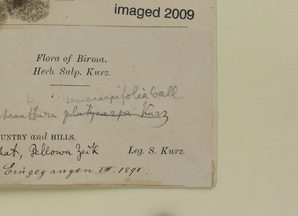 imaged 2009
Flora of Birma.
Herb. Sulp. Kurz.
semecarpifolia Call.
platycarpa Kurz
UNTRY and HILLS.
hat, Pellowa Zeik Leg. S. Kurz.
Eingegangen VII. 1891.